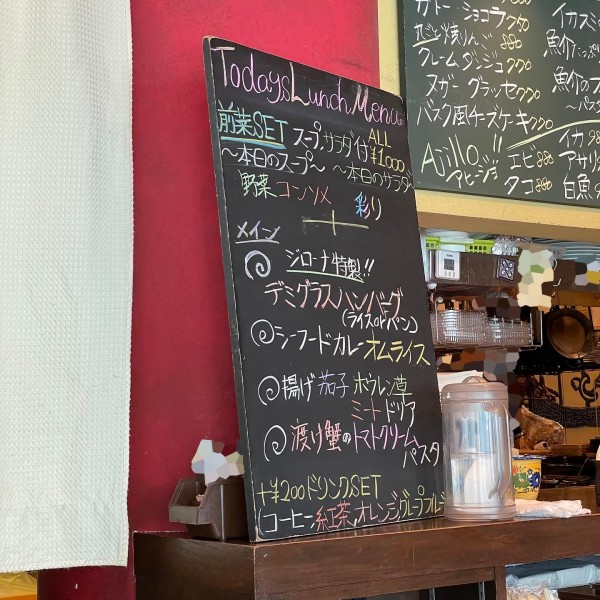 Todays Lunch Menu
前菜SET スープ、サラダ付 ALL ¥1,000
〜本日のスープ〜 〜本日のサラダ〜
野菜コーンソメ 彩り
+
メイン
ジローナ特製!!
デミグラスハンバーグ
(ライスorパン)
シーフードカレーオムライス
揚げ茄子ホウレン草
ミートドリア
渡り蟹のトマトクリーム
パスタ
+¥200ドリンクSET
(コーヒー,紅茶,オレンジ,グレープフル
ガトーショコラ
焼りんご 880
クレームダンジュ 770
ヌガーグラッセ 770
バスク風チーズケーキ 770
Ajillo!!
アヒージョ
エビ 880
タコ 880
イカスミ
魚介
魚介の
〜パスタ
イカ 98
アサリ
白魚